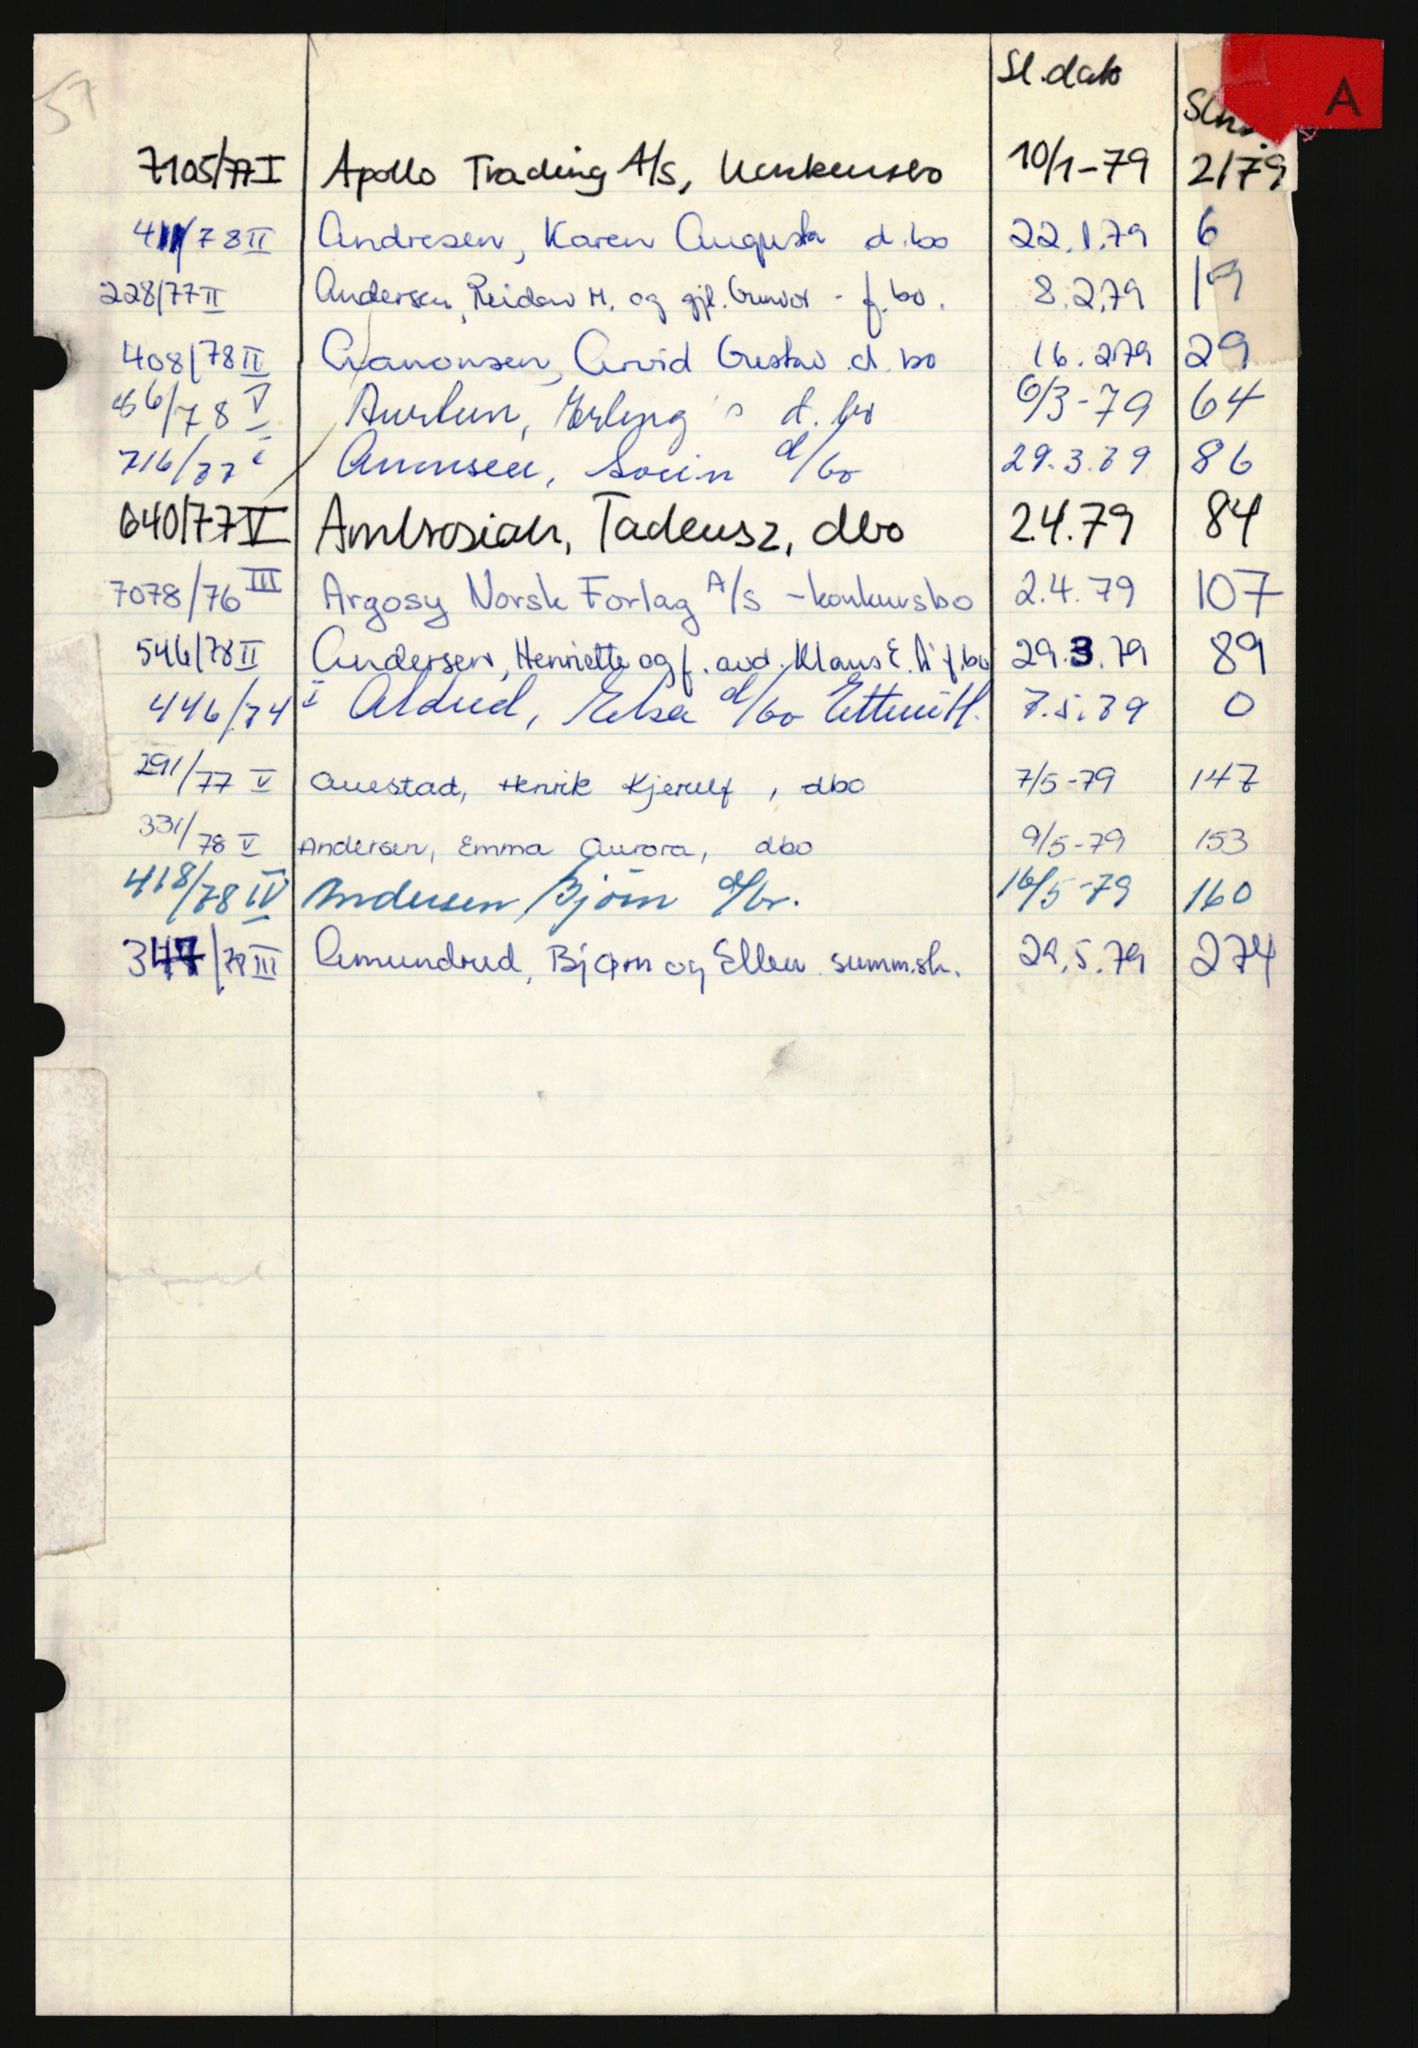 57
Sl.dato
A
7105/77 I Apollo Trading A/S, Konkursbo 10/1-79 2/79
411/78 II Andresen, Karen Augusta d.bo 22.1.79 6
228/77 II Andersen, Reidar M. og gjl. Gunvor - f.bo. 8.2.79 19
408/78 II Aanonsen, Arvid Gustav d.bo 16.2.79 29
/78 V Erling d.bo 6/3-79 64
716/77 I d/bo 29.3.79 86
640/77 V Ambrosiak, Tadeusz, dbo 2.4.79 84
7078/76 III Argosy Norsk Forlag A/S - konkursbo 2.4.79 107
546/78 II Andersen, Henriette og f. avd. Klaus E. f.bo 29.3.79 89
446/74 I Elsa d/bo 7.5.79 0
291/77 V Auestad, Henrik Kjerulf, dbo 7/5-79 147
331/78 V Andersen, Emma Aurora, dbo 9/5-79 153
418/78 IV Andersen Bjørn d/bo. 16/5-79 160
347/79 III Amundrud, Bjørn og Ellen summ.sk. 29.5.79 274